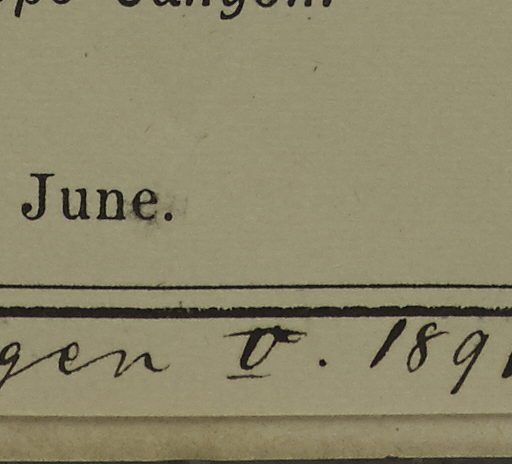 June.
gen V. 1891